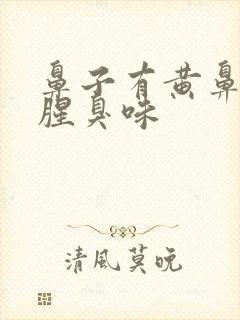 鼻子有黄鼻
腥臭味
清風莫晚